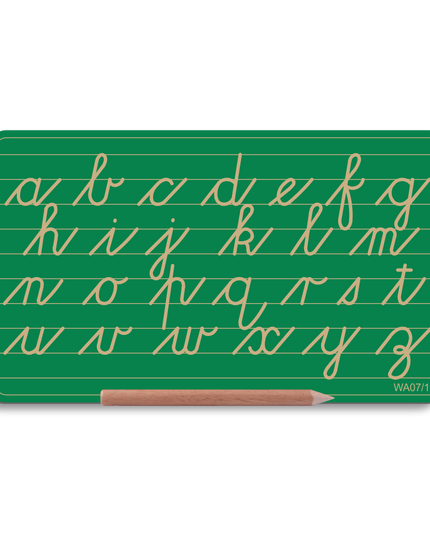 a b c d e f g
h i j k l m
n o p q r s t
u v w x y z
WA07/1